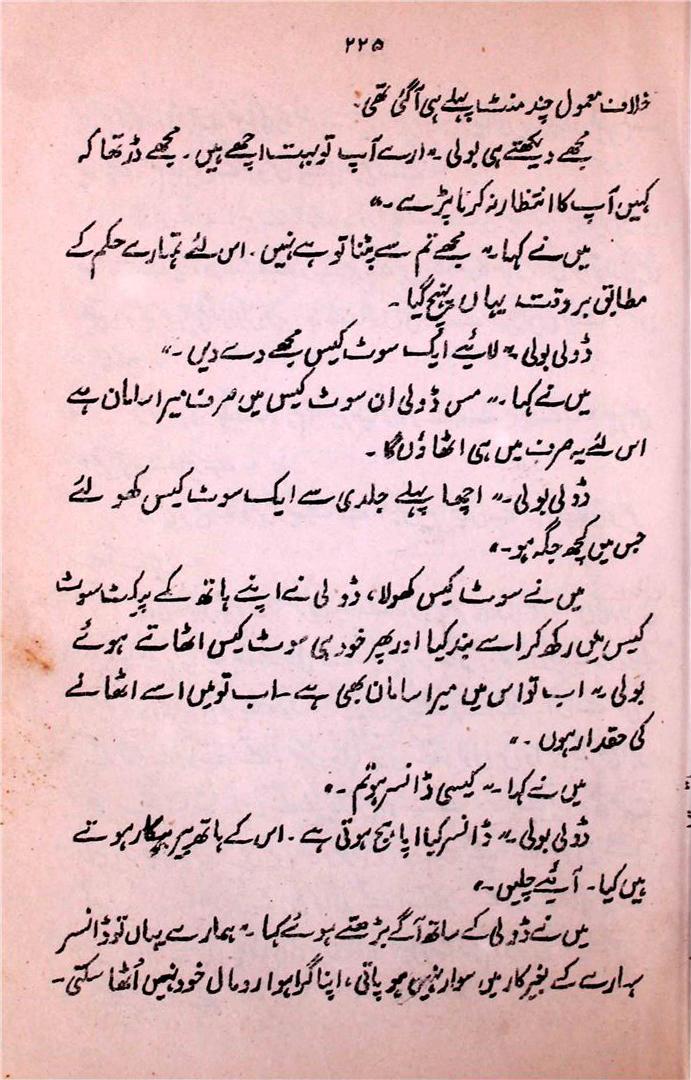 ۲۲۵
خلاف معمول چند منٹ پہلے ہی آگئی تھی۔
مجھے دیکھتے ہی بولی۔" ارے آپ تو بہت اچھے ہیں۔ مجھے ڈر تھا کہ
کہیں آپ کا انتظار نہ کرنا پڑے۔"
میں نے کہا۔" مجھے تم سے پٹنا تو ہے نہیں۔ اس لئے تمہارے حکم کے
مطابق بروقت یہاں پہنچ گیا۔
ڈولی بولی۔" لائیے ایک سوٹ کیس مجھے دے دیں۔"
میں نے کہا۔" مس ڈولی ان سوٹ کیس میں صرف میرا سامان ہے
اس لئے یہ صرف میں ہی اٹھاؤں گا۔
ڈولی بولی۔" اچھا پہلے جلدی سے ایک سوٹ کیس کھولئے
جس میں کچھ جگہ ہو۔"
میں نے سوٹ کیس کھولا، ڈولی نے اپنے ہاتھ کے پیکٹ سوٹ
کیس میں رکھ کر اسے بند کیا اور پھر خود ہی سوٹ کیس اٹھاتے ہوئے
بولی۔" اب تو اس میں میرا سامان بھی ہے۔ اب تو میں اسے اٹھانے
کی حقدار ہوں۔"
میں نے کہا۔" کیسی ڈانسر ہو تم۔"
ڈولی بولی۔" ڈانسر کیا اپاہج ہوتی ہے۔ اس کے ہاتھ پیر بیکار ہوتے
ہیں کیا۔ آئیے چلیں۔"
میں نے ڈولی کے ساتھ آگے بڑھتے ہوئے کہا۔" ہمارے یہاں تو ڈانسر
سہارے کے بغیر کار میں سوار نہیں ہو پاتی، اپنا گرا ہوا رومال خود نہیں اُٹھا سکتی۔